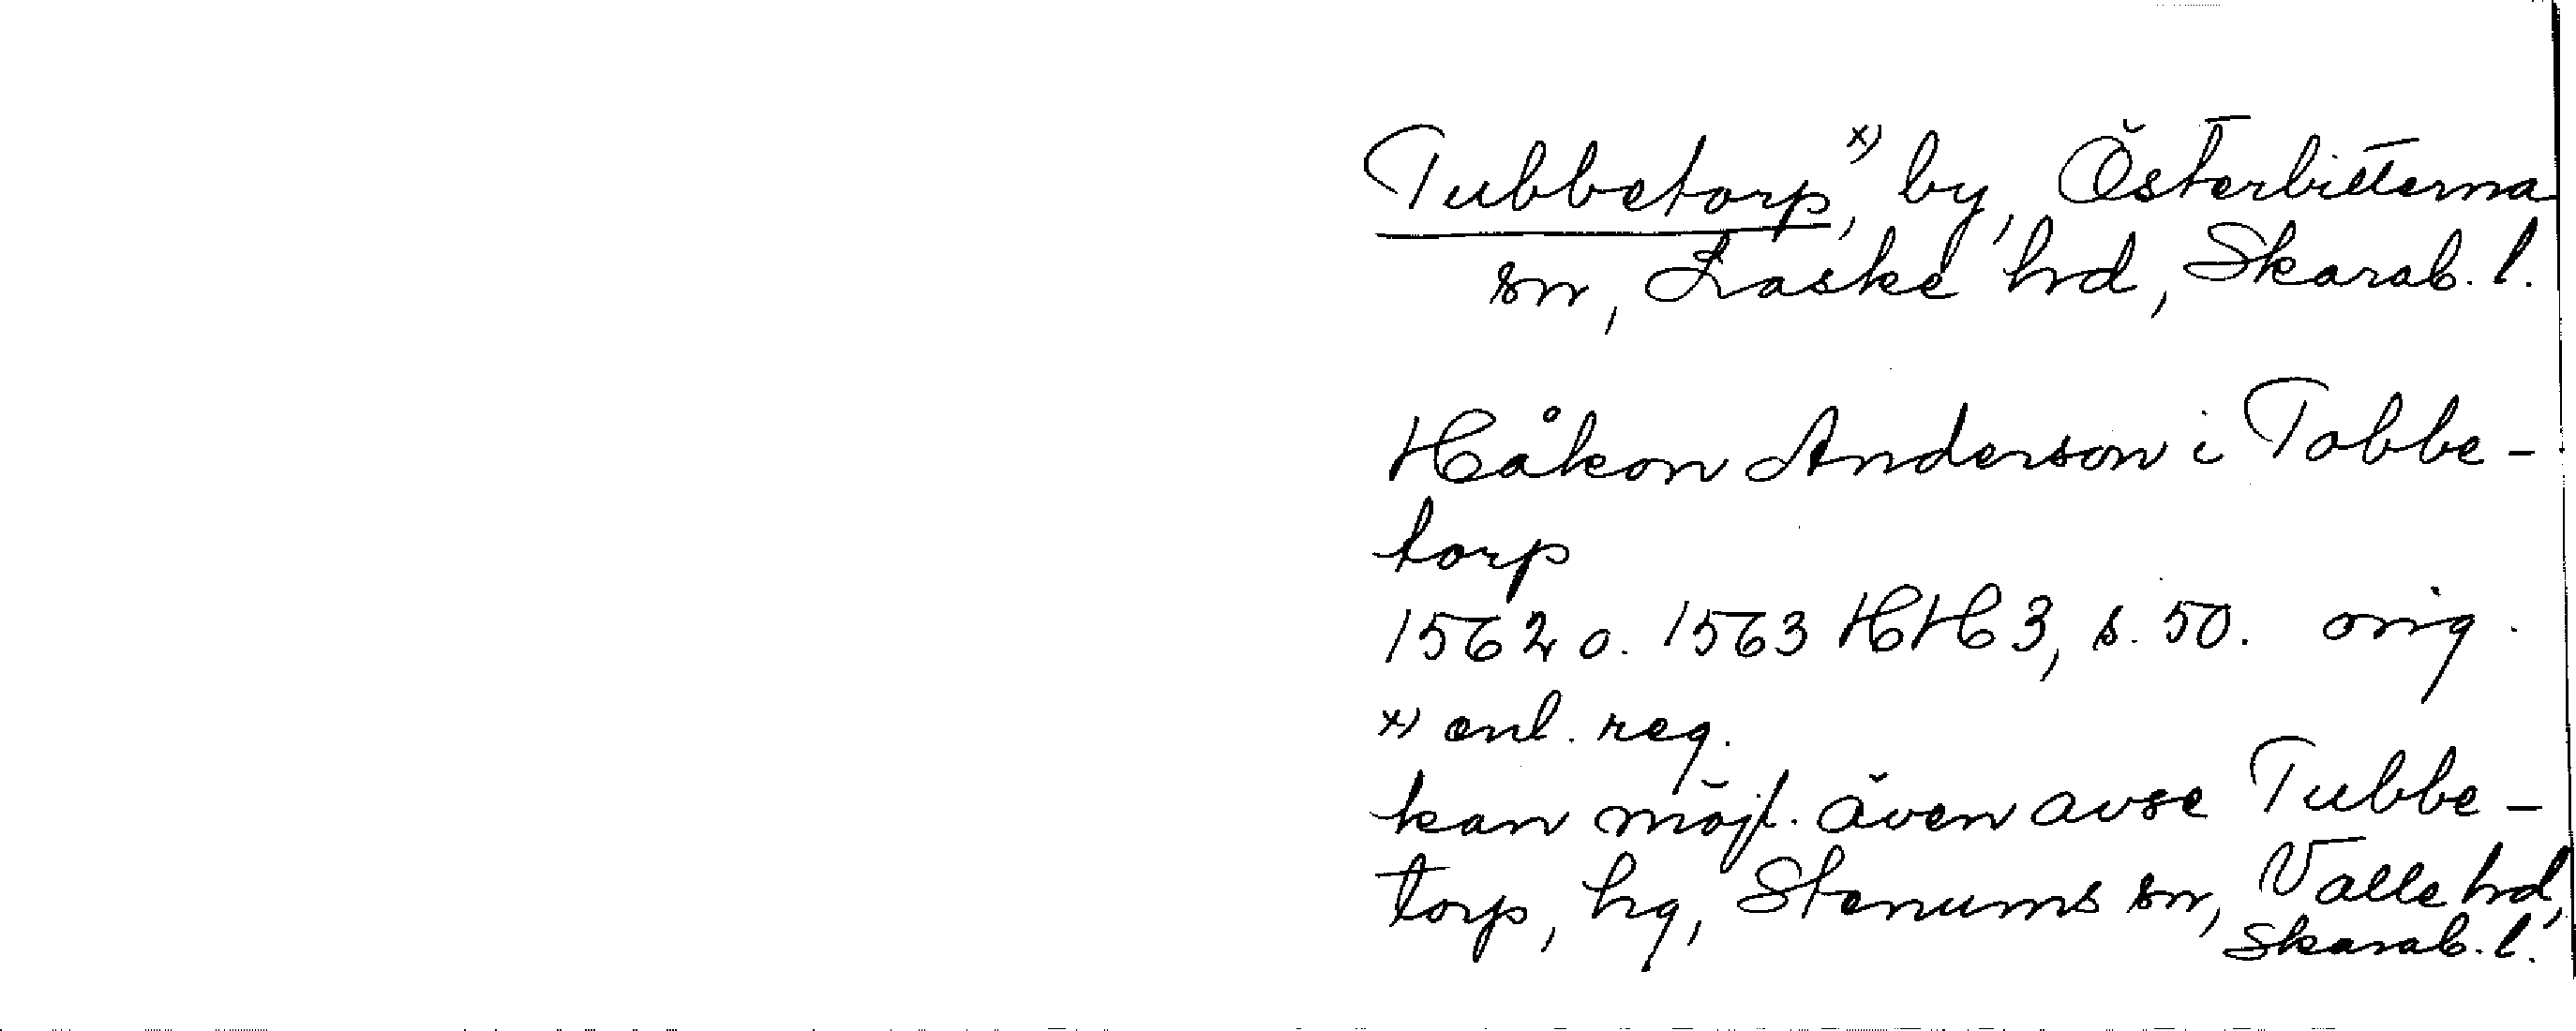 Tubbetorp, x) by, Österbitterna
sn, Laske hd, Skarab. l.
Håkon Anderson i Tobbe-
torp
1562 o. 1563 HH 3, s. 50. orig.
x) enl. reg.
kan möjl. även avse Tubbe-
torp, hg, Stenums sn, Valle hd,
Skarab. l.